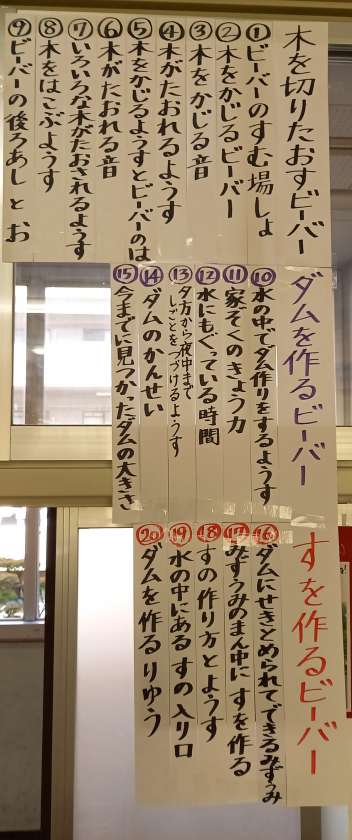 木を切りたおすビーバー
①ビーバーのすむ場しょ
②木をかじるビーバー
③木をかじる音
④木がたおれるようす
⑤木をかじるようすとビーバーのは
⑥木がたおれる音
⑦いろいろな木がたおされるようす
⑧木をはこぶようす
⑨ビーバーの後ろあしとお
ダムを作るビーバー
⑩水の中でダム作りをするようす
⑪家ぞくのきょう力
⑫水にもぐっている時間
⑬夕方から夜中まで
しごとをつづけるようす
⑭ダムのかんせい
⑮今までに見つかったダムの大きさ
すを作るビーバー
⑯ダムにせきとめられてできるみずうみ
⑰みずうみのまん中にすを作る
⑱すの作り方とようす
⑲水の中にあるすの入り口
⑳ダムを作るりゆう